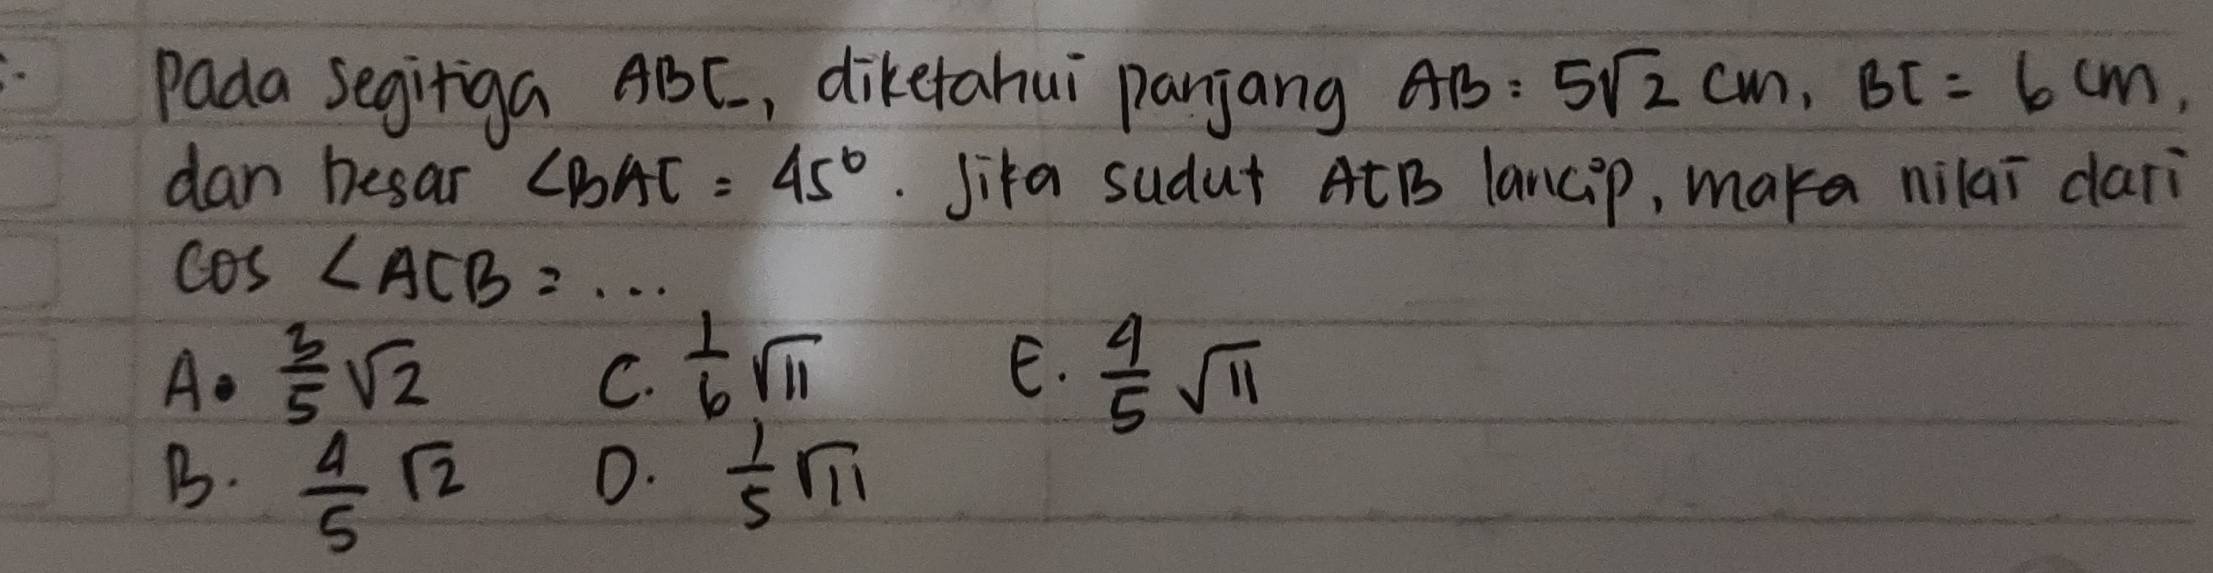 Pada segitiga ABC, diketahui panjang AB = 5√2 cm, BC = 6 cm,
dan besar ∠BAC = 45°. Jika sudut ACB lancip, maka nilai dari
cos ∠ACB = ...
A. 3/5 √2 C. 1/6 √11 E. 4/5 √11
B. 4/5 √2 D. 1/5 √11